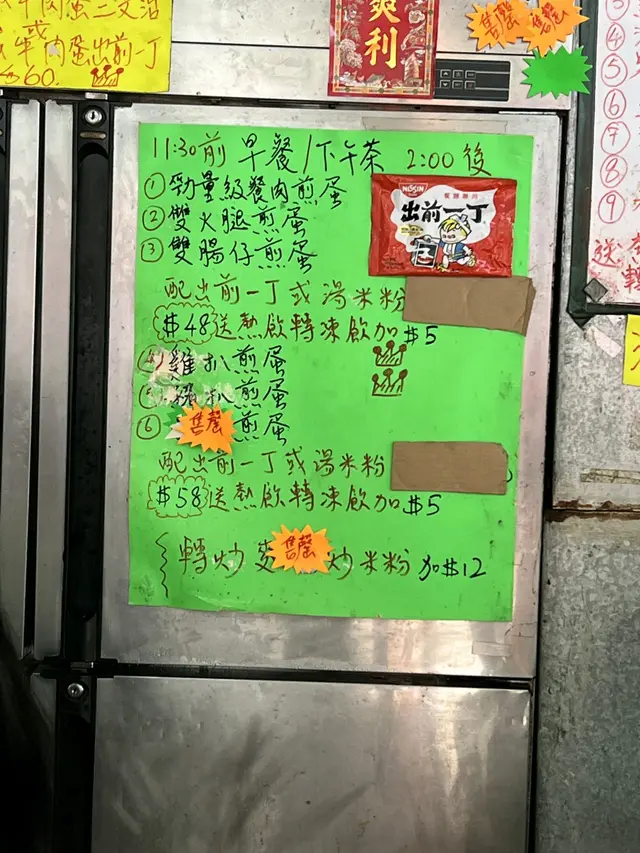 牛肉蛋三文治
或
牛肉蛋出前一丁
$60.
爽利
售罄
售罄
③
④
⑤
⑥
⑦
⑧
⑨
送
轉
11:30前 早餐/下午茶 2:00後
① 勁量級餐肉煎蛋
② 雙火腿煎蛋
③ 雙腸仔煎蛋
NISSIN
出前一丁
配出前一丁或湯米粉
$48送熱飲轉凍飲加$5
④ 雞扒煎蛋
⑤ 豬扒煎蛋
⑥ 售罄 煎蛋
配出前一丁或湯米粉
$58送熱飲轉凍飲加$5
轉炒 售罄 炒米粉 加$12